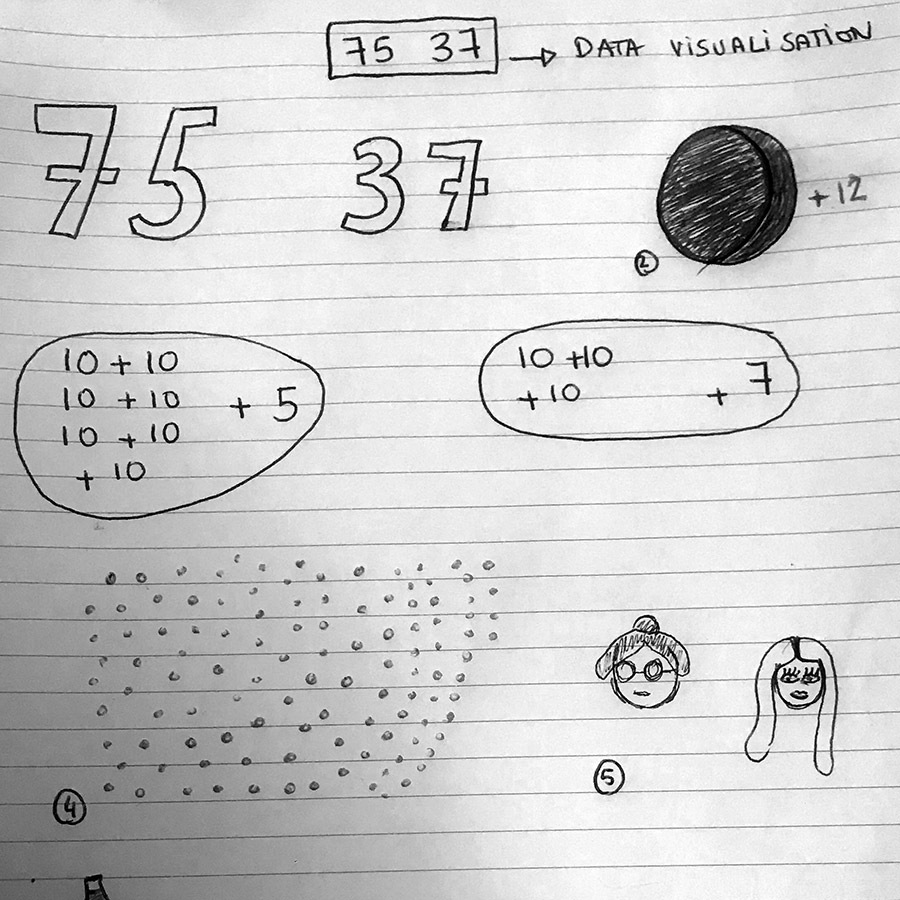 75 37 → DATA VISUALISATION
75 37
+ 12
2
10 + 10
10 + 10 + 5
10 + 10
+ 10
10 + 10
+ 10 + 7
4
5